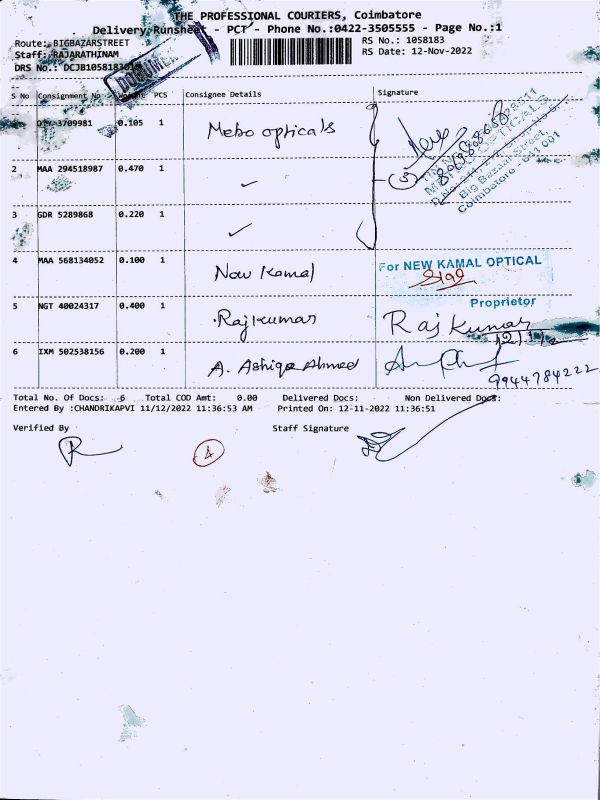 THE PROFESSIONAL COURIERS, Coimbatore
Delivery Runsheet - PCT - Phone No.:0422-3505555 - Page No.:1
Route: BIGBAZARSTREET
RS No.: 1058183
Staff: RAJARATHINAM
RS Date: 12-Nov-2022
DRS No.: DCJB1058183
DOCUMENT
S No Consignment No Weight PCS Consignee Details Signature
3709981 0.105 1 Mebo opticals
2 MAA 294518987 0.470 1 ✓
3 GDR 5289868 0.220 1 ✓
Big Bazaar Street,
Coimbatore - 641 001
4 MAA 568134052 0.100 1 New Kamal
For NEW KAMAL OPTICAL
Proprietor
5 NGT 40024317 0.400 1 Rajkumar Raj Kumar
6 IXM 502538156 0.200 1 A. Ashiqe Ahmed
9944784222
Total No. Of Docs: 6 Total COD Amt: 0.00 Delivered Docs: Non Delivered Docs:
Entered By :CHANDRIKAPVI 11/12/2022 11:36:53 AM Printed On: 12-11-2022 11:36:51
Verified By Staff Signature
4